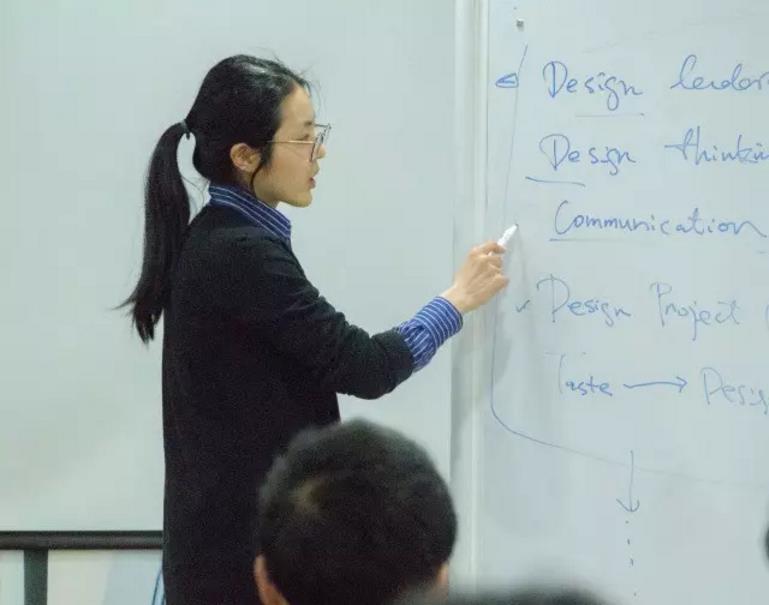 Design leader
Design thinkin
Communication
Design Project
Taste → Desig